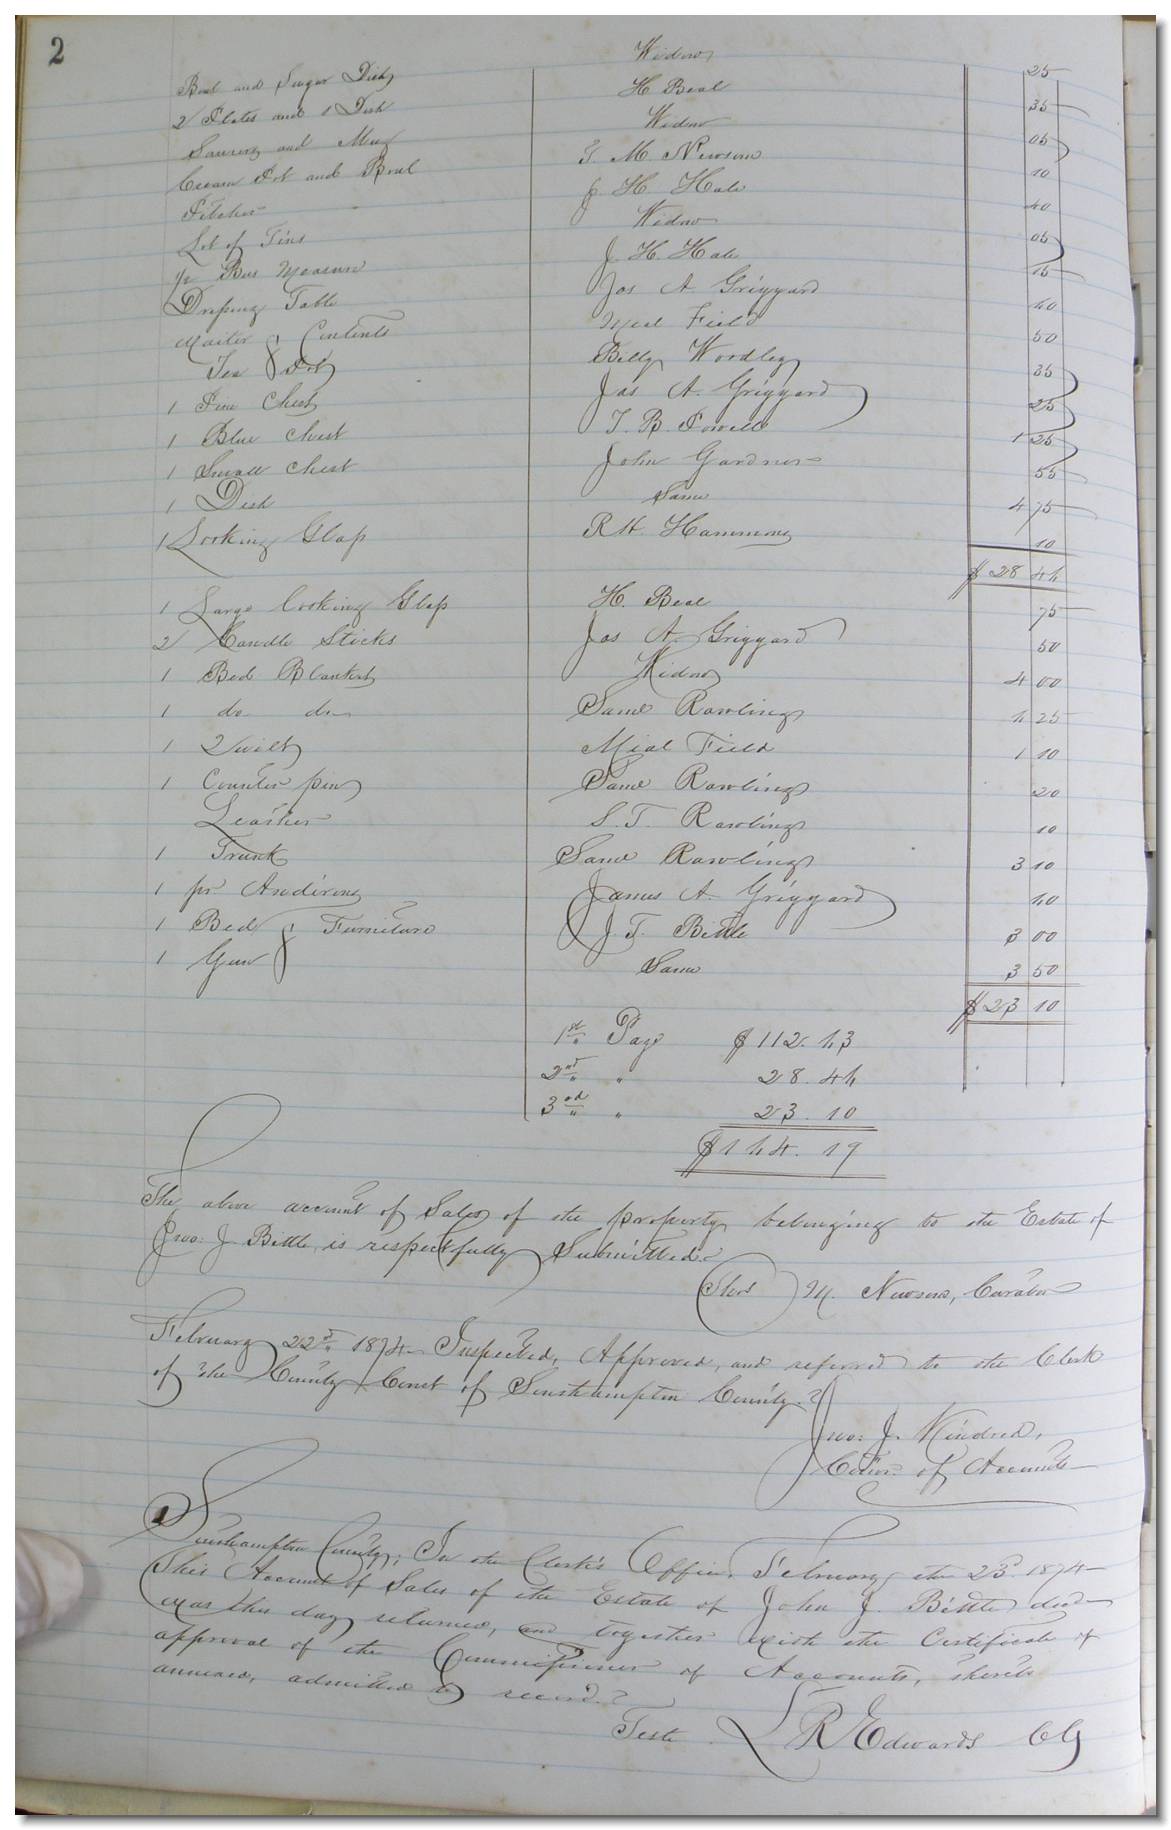 2
Bowl and Sugar Dish Widow 25
2 Plates and 1 Dish H Beal 35
Saucers and Mug Widow 05
Cream Pot and Bowl T M Newsom 10
Pitcher J H Hale 40
Lot of Tins Widow 05
½ Bus Measure J. H. Hale 15
Dressing Table Jas A Griggard
Waiter & Contents Mial Field 50
Tea Pot Billy Wordley 35
1 Pine Chest Jas A. Griggard 25
1 Blue Chest T. B. Powell 1 25
1 Small Chest John Gardner 55
1 Desk Same 4 75
1 Looking Glass R H. Hammons 10
$ 28 46
1 Large Looking Glass H. Beal 75
2 Candle Sticks Jas A. Griggard 50
1 Bed Blankets Widow 4 00
1 do do Saml Rawlings 6 25
1 Quilt Mial Field 1 10
1 Counter pin Saml Rawlings 20
Leather S. T. Rawlings 10
1 Trunk Saml Rawlings 3 10
1 pr Andirons James A. Griggard 60
1 Bed & Furniture J. T. Bittle 3 00
1 Gun Same 3 50
$ 23 10
1st Page $ 112. 63
2nd " 28. 46
3rd " 23. 10
$ 164. 19
The above account of Sales of the property belonging to the Estate of
Jno: J Bittle, is respectfully Submitted.
Thos M. Newsom, Curator
February 22nd 1874 Inspected, Approved, and referred to the Clerk
of the County Court of Southampton County.
Jno: J. Kindred,
Comr. of Accounts
Southampton County; In the Clerk's Office, February the 23d. 1874
This Account of Sales of the Estate of John J. Bittle decd
was this day returned, and together with the Certificate of
approval of the Commissioner of Accounts, thereto
annexed, admitted to record.
Teste L R Edwards CC